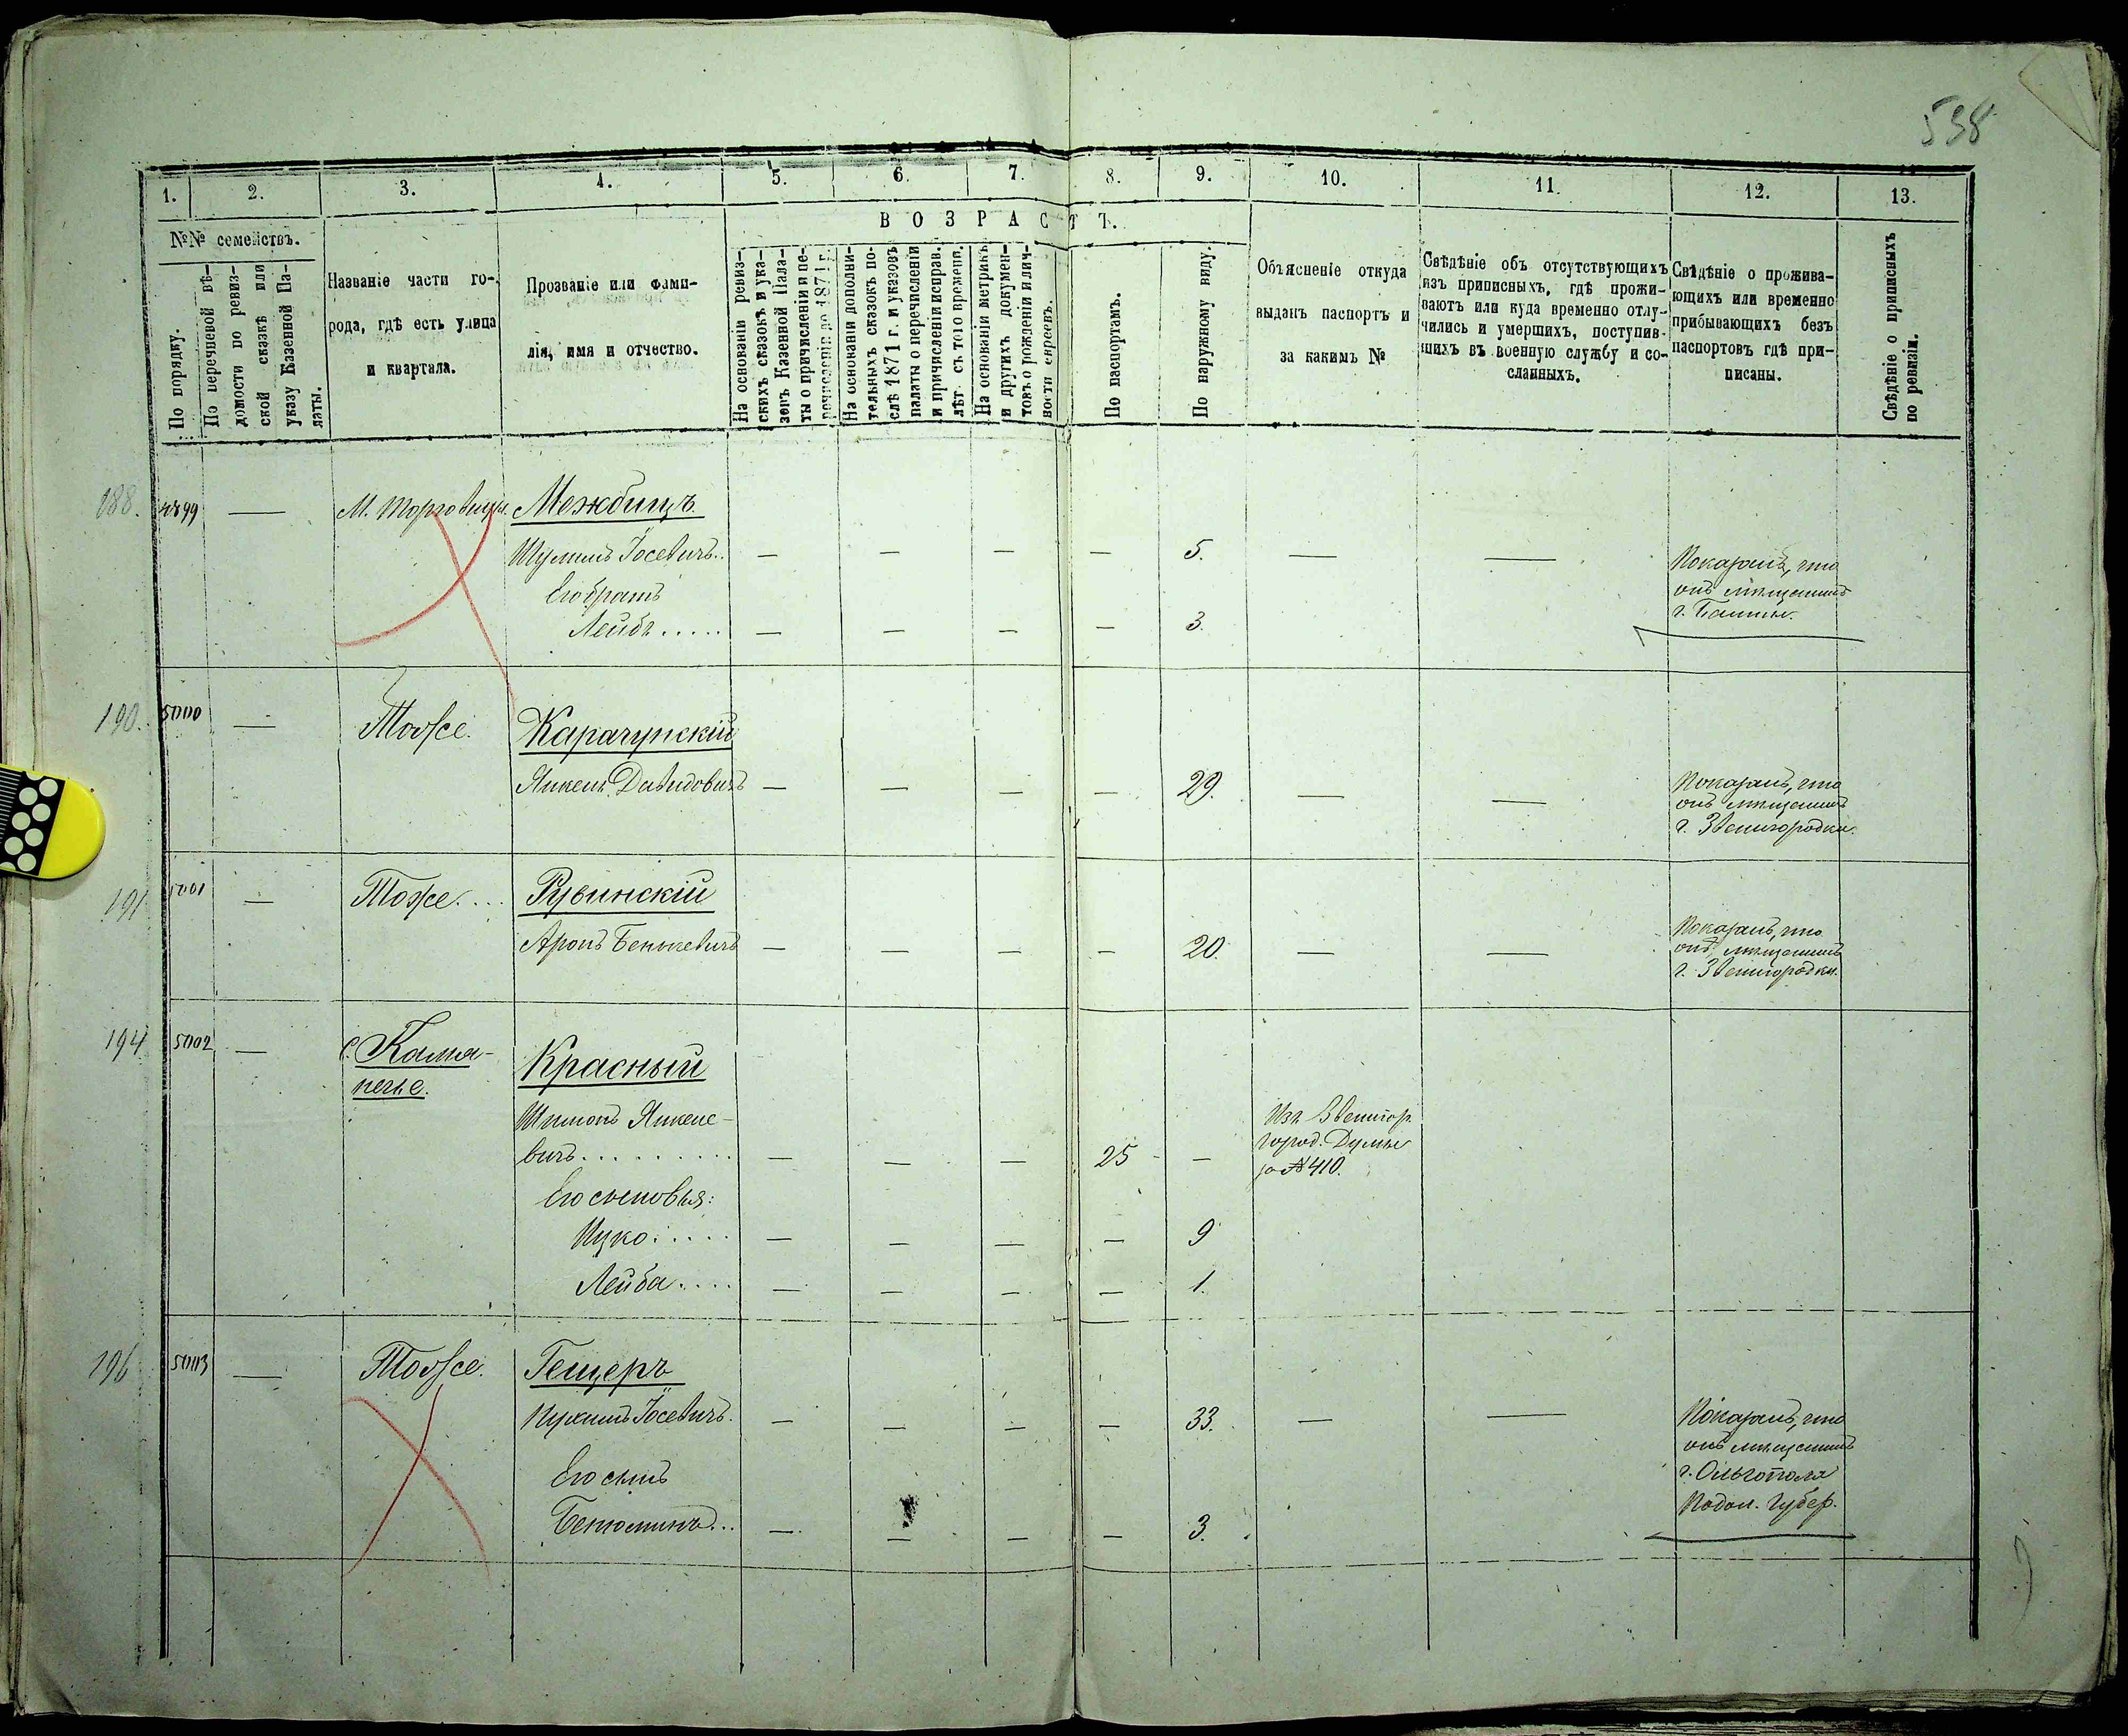 538
1. 2. 3. 4. 5. 6. 7. 8. 9. 10. 11. 12. 13.
№№ семействъ.
По порядку.
По перечневой вѣ-
домости по ревиз-
ской сказкѣ или
указу Казенной Па-
латы.
Названіе части го-
рода, гдѣ есть улица
и квартала.
Прозваніе или фами-
лія, имя и отчество.
ВОЗРАСТЪ.
На основаніи ревиз-
скихъ сказокъ и ука-
зовъ Казенной Пала-
ты о причисленіи и пе-
речисленіи до 1871 г.
На основаніи дополни-
тельныхъ сказокъ по-
слѣ 1871 г. и указовъ
палаты о перечисленіи
и причисленіи исправ.
лѣт съ того времени.
На основаніи метрикъ
и другихъ докумен-
товъ о рожденіи и лич-
ности евреевъ.
По паспортамъ.
По наружному виду.
Объясненіе откуда
выданъ паспортъ и
за какимъ №
Свѣдѣніе объ отсутствующихъ
изъ приписныхъ, гдѣ прожи-
ваютъ или куда временно отлу-
чились и умершихъ, поступив-
шихъ въ военную службу и со-
сланныхъ.
Свѣдѣніе о прожива-
ющихъ или временно
прибывающихъ безъ
паспортовъ гдѣ при-
писаны.
Свѣдѣніе о приписныхъ
по ревизіи.
188. 4899 — М. Торговица. Межбицъ
Шулимъ Іосевичъ.. — — — — 5. — — Показалъ, что
Его братъ онъ мѣщанинъ
Лейба ..... — — — — 3. г. Балты.
190. 5000 — Тоже. Карачунскій
Янкель Давидовичъ — — — — 29. — — Показалъ, что
онъ мѣщанинъ
г. Звенигородки.
191 5001 — Тоже. ... Рувинскій
Аронъ Бенькевичъ — — — — 20. — — Показалъ, что
онъ мѣщанинъ
г. Звенигородки.
194 5002 — с. Камя- Красный
нечье.
Шимонъ Янкеле- Изъ Звенигор.
вичъ.......... — — — 25 — город. Думы
за № 410.
Его сыновья:
Ицко..... — — — — 9
Лейба.... — — — — 1.
196 5003 — Тоже. Гещеръ
Нухимъ Іосевичъ. — — — — 33. — — Показалъ, что
онъ мѣщанинъ
Его сынъ г. Ольгополя
Бенюминъ... — — — — 3. Подол. Губер.